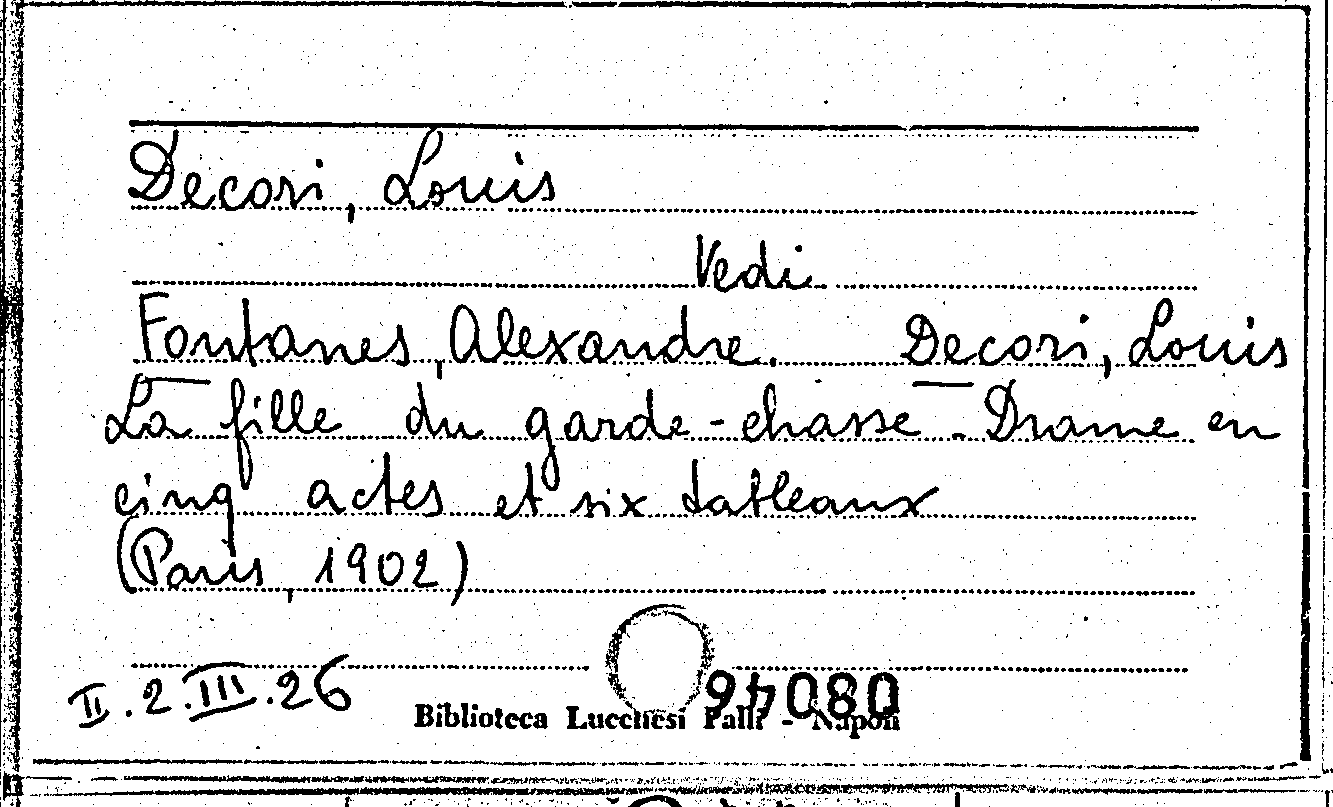 Decori, Louis
Vedi
Fontanes, Alexandre. Decori, Louis
La fille du garde-chasse - Drame en
cinq actes et six tableaux
(Paris, 1902)
II.2.III.26
Biblioteca Lucchesi Palli - Napoli